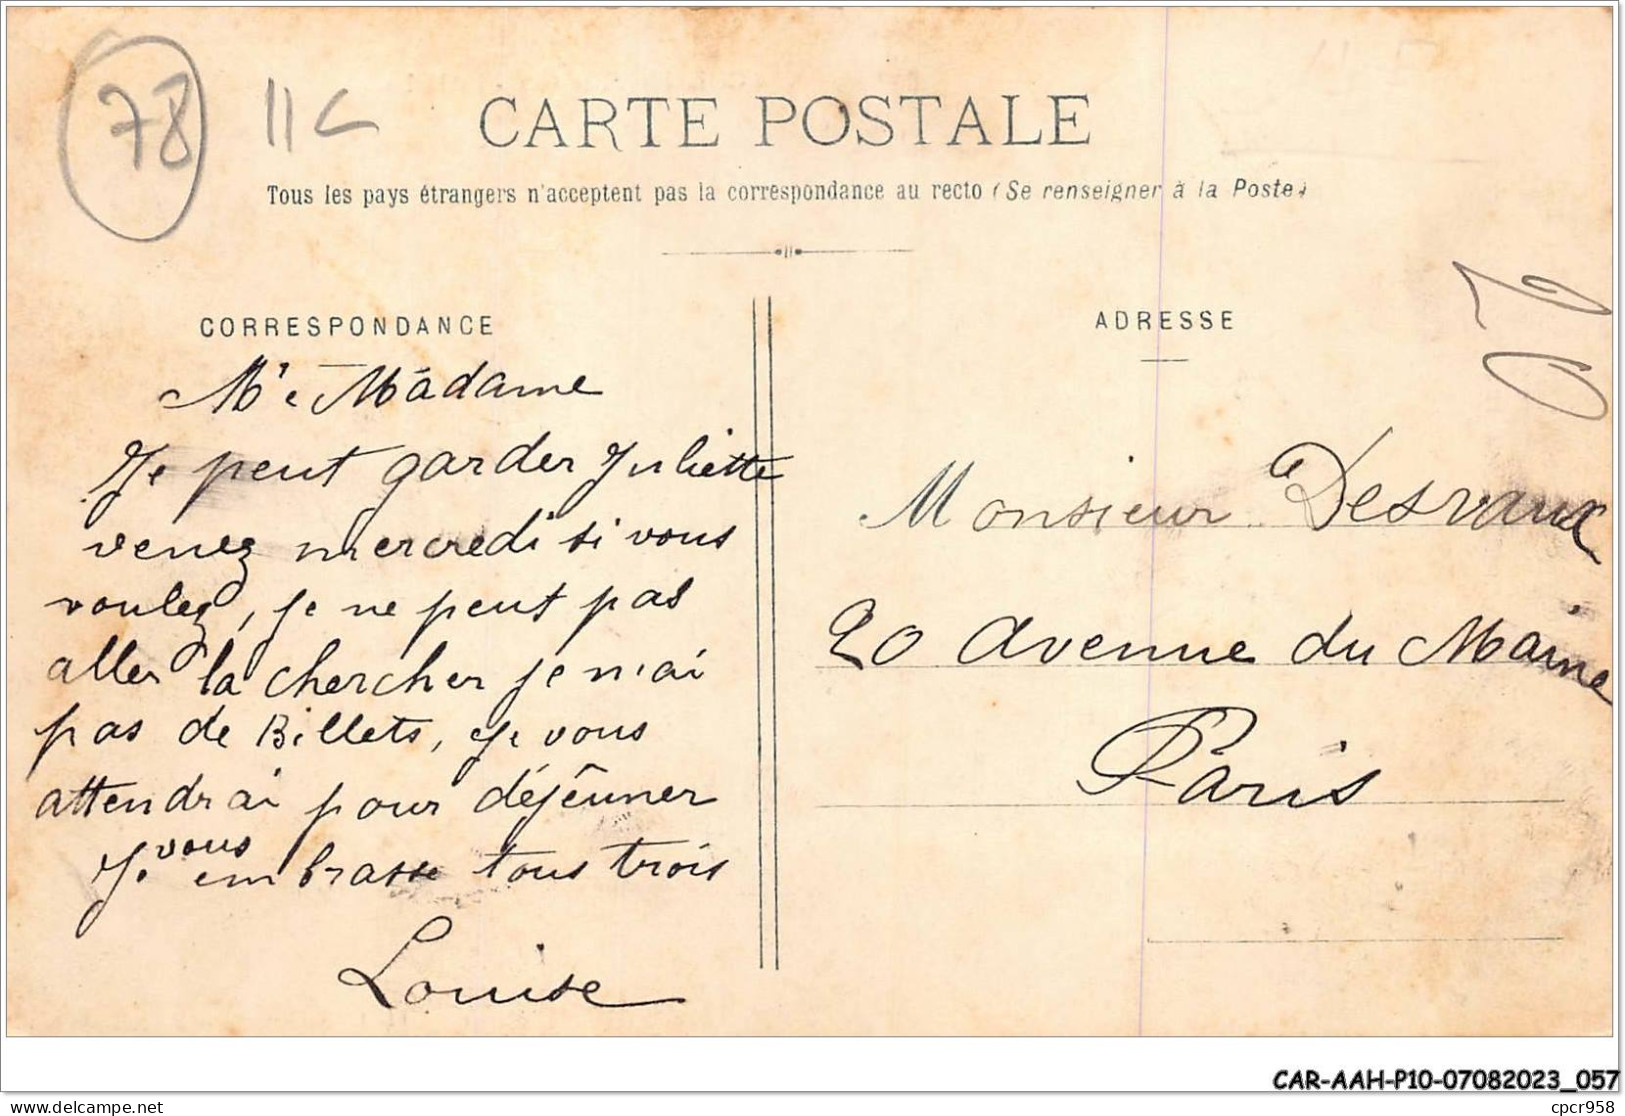 78
11C
CARTE POSTALE
Tous les pays étrangers n'acceptent pas la correspondance au recto (Se renseigner à la Poste)
CORRESPONDANCE
Mr e Madame
Je peut garder Juliette
venez mercredi si vous
voulez, je ne peut pas
aller la chercher je n'ai
pas de Billets, Je vous
attendrai pour déjeuner
Je vous embrasse tous trois
Louise
ADRESSE
Monsieur Desvaux
20 Avenue du Maine
Paris
CAR-AAH-P10-07082023_057
delcampe.net
cpcr958